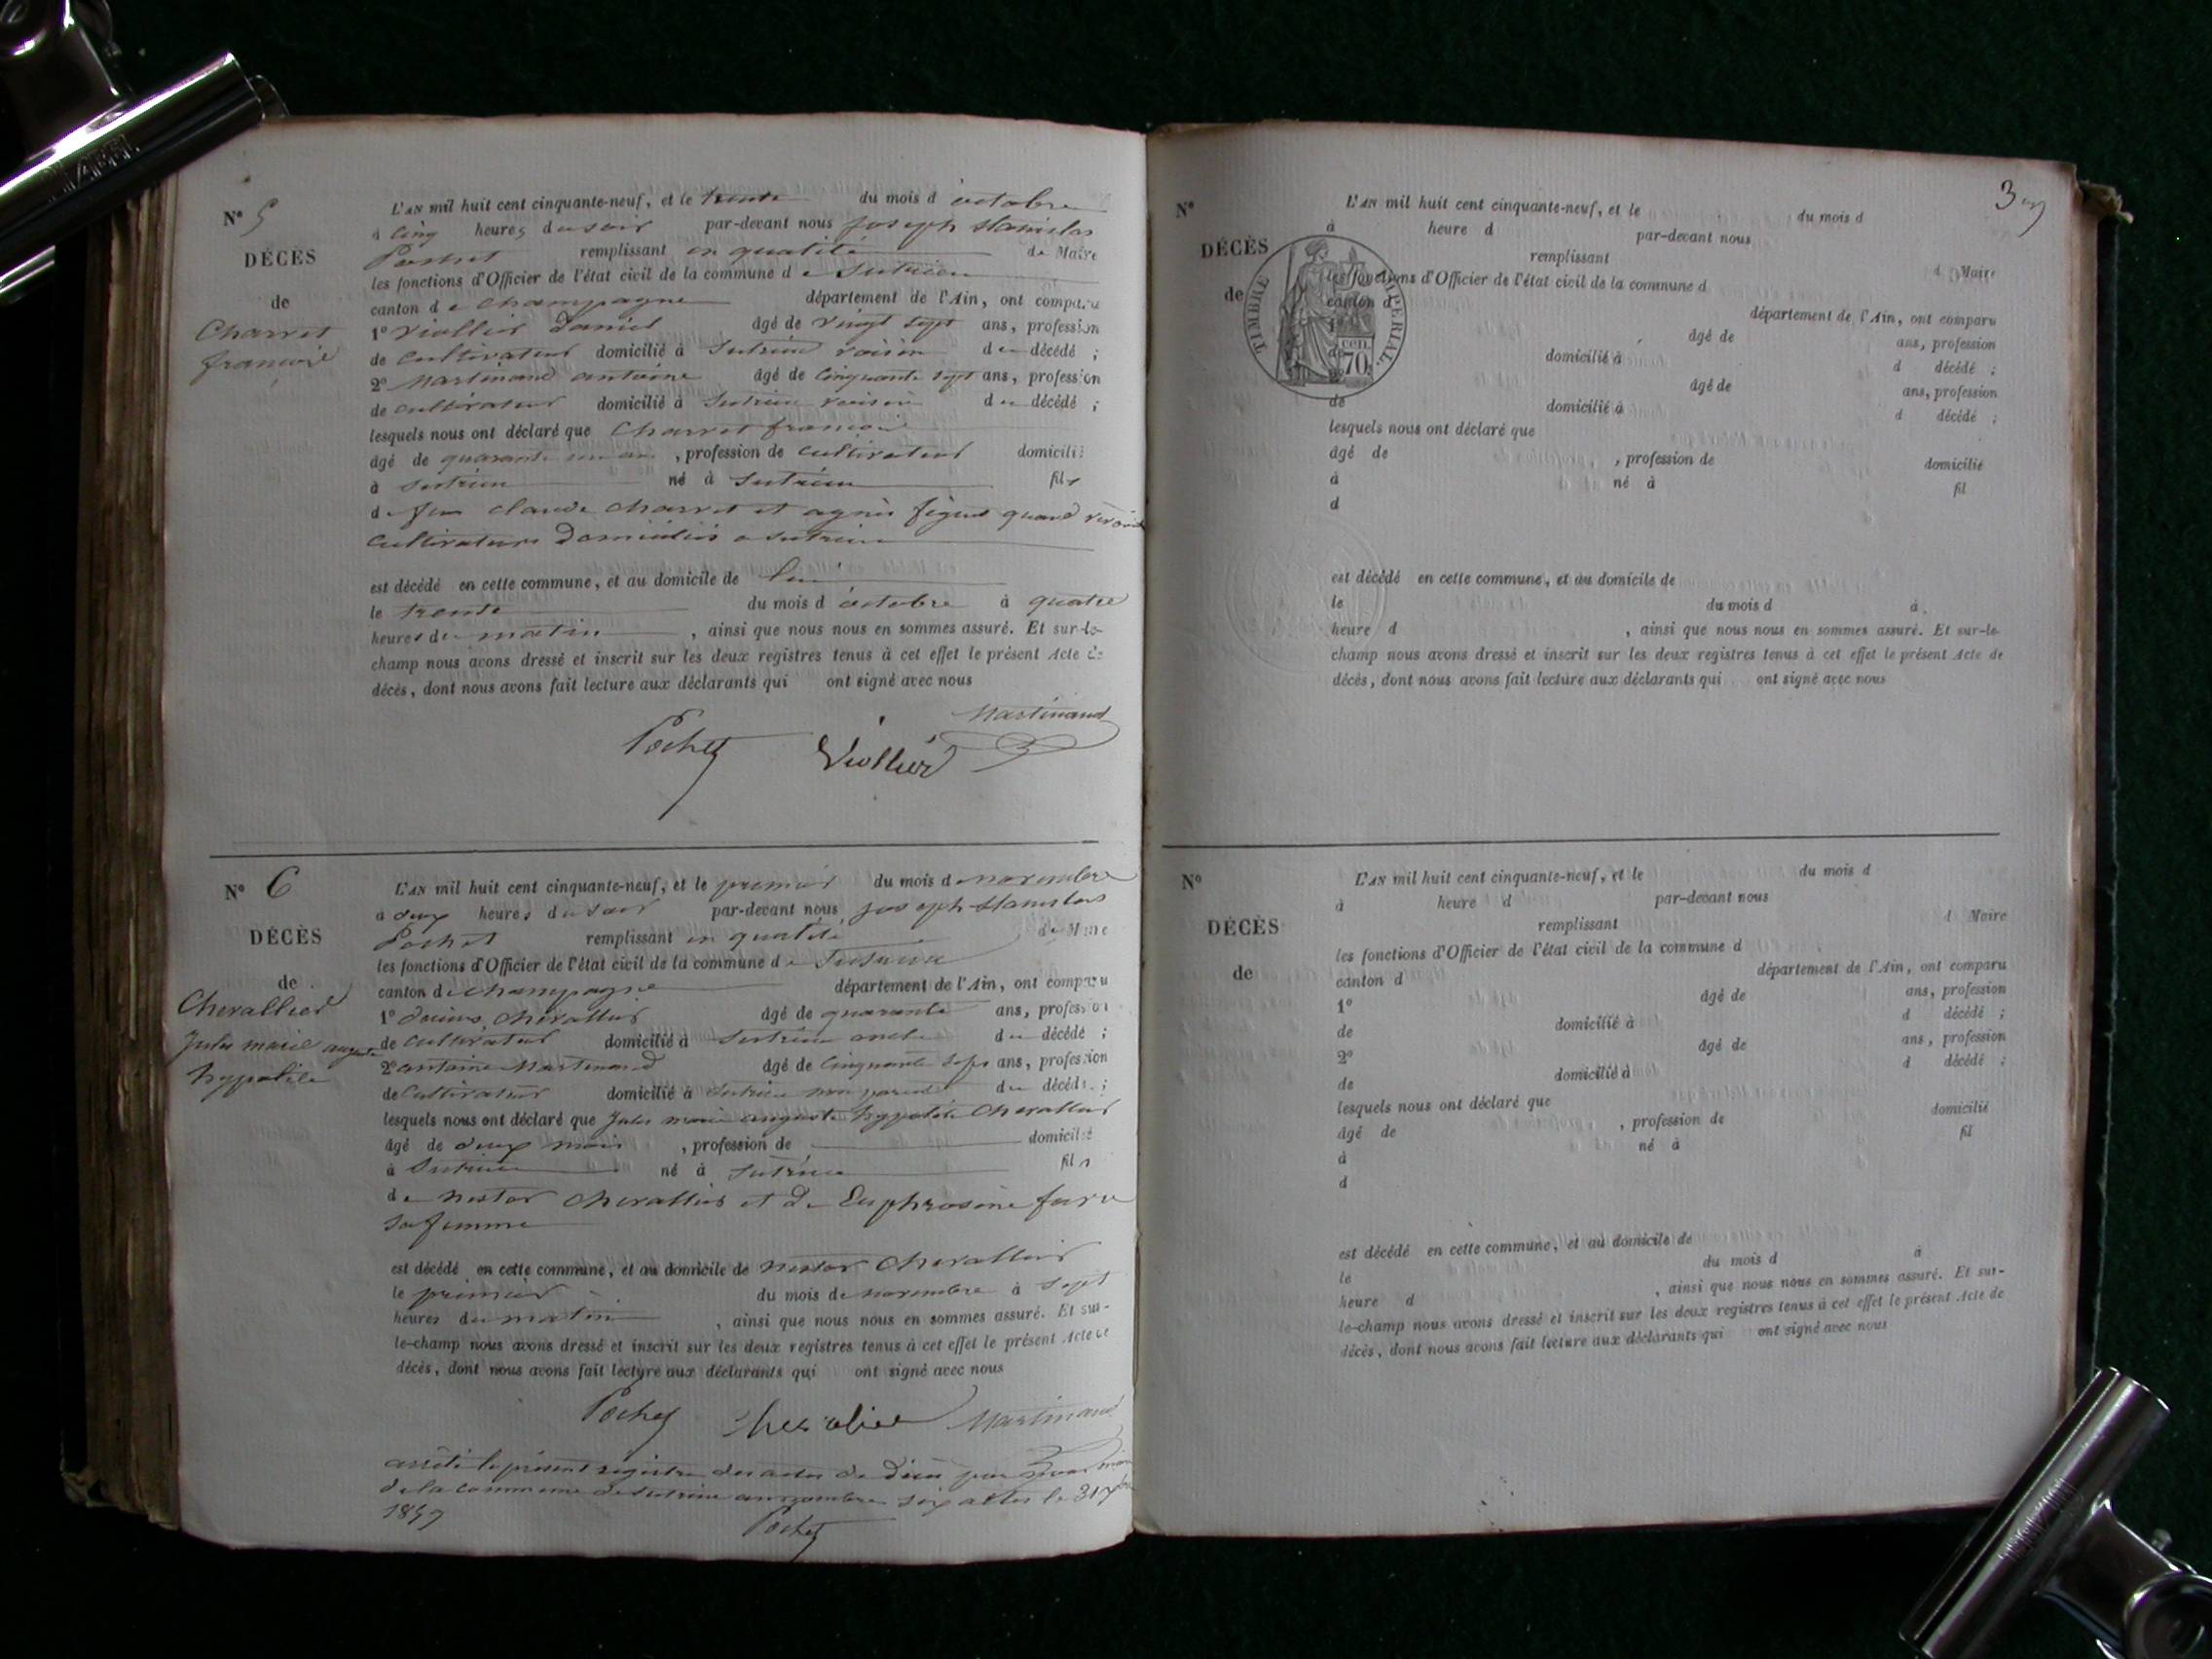 N° 5
DÉCÈS
de
Charvet
françois
L'AN mil huit cent cinquante-neuf, et le trente du mois d'octobre
à cinq heures du soir par-devant nous joseph stanislas
Pochet remplissant en qualité de Maire
les fonctions d'Officier de l'état civil de la commune de Sutrieu
canton de champagne département de l'Ain, ont comparu
1° Viollier daniel âgé de vingt sept ans, profession
de cultivateur domicilié à Sutrieu voisin du décédé ;
2° Martinand antoine âgé de cinquante sept ans, profession
de cultivateur domicilié à Sutrieu voisin du décédé ;
lesquels nous ont déclaré que Charvet françois
âgé de quarante un ans, profession de cultivateur domicilié
à Sutrieu né à Sutrieu fils
de feu claude charvet et agnès quand vivait
cultivateurs domiciliés a sutrieu
est décédé en cette commune, et au domicile de lui
le trente du mois d'octobre à quatre
heures du matin, ainsi que nous nous en sommes assuré. Et sur-le-
champ nous avons dressé et inscrit sur les deux registres tenus à cet effet le présent Acte de
décès, dont nous avons fait lecture aux déclarants qui ont signé avec nous
Martinand
Pochet Viollier
N° 6
DÉCÈS
de
Chevallier
Jules marie auguste
hypolite
L'AN mil huit cent cinquante-neuf, et le premier du mois de novembre
à deux heures du soir par-devant nous joseph stanislas
Pochet remplissant en qualité de Maire
les fonctions d'Officier de l'état civil de la commune de Sutrieu
canton de champagne département de l'Ain, ont comparu
1° chevallier âgé de quarante ans, profession
de cultivateur domicilié à Sutrieu oncle du décédé ;
2° antoine Martinand âgé de cinquante sept ans, profession
de cultivateur domicilié à Sutrieu non parent du décédé ;
lesquels nous ont déclaré que Jules marie auguste hypolite Chevallier
âgé de deux mois, profession de domicilié
à Sutrieu né à Sutrieu fils
de nestor chevallier et de Euphrosine favre
sa femme
est décédé en cette commune, et au domicile de nestor chevallier
le premier du mois de novembre à sept
heures du matin, ainsi que nous nous en sommes assuré. Et sur-
le-champ nous avons dressé et inscrit sur les deux registres tenus à cet effet le présent Acte de
décès, dont nous avons fait lecture aux déclarants qui ont signé avec nous
Pochet Chevalier Martinand
arrêté le présent registre des actes de décès par nous maire
de la commune de sutrieu au nombre six actes le 31 Xbre
1859 Pochet
3
N°
DÉCÈS
de
TIMBRE IMPÉRIAL
70 cen.
L'AN mil huit cent cinquante-neuf, et le du mois d
à heure d par-devant nous
remplissant d Maire
les fonctions d'Officier de l'état civil de la commune d
canton d département de l'Ain, ont comparu
1° âgé de ans, profession
de domicilié à d décédé ;
2° âgé de ans, profession
de domicilié à d décédé ;
lesquels nous ont déclaré que
âgé de , profession de domicilié
à né à fil
d
est décédé en cette commune, et au domicile de
le du mois d à
heure d , ainsi que nous nous en sommes assuré. Et sur-le-
champ nous avons dressé et inscrit sur les deux registres tenus à cet effet le présent Acte de
décès, dont nous avons fait lecture aux déclarants qui ont signé avec nous
N°
DÉCÈS
de
L'AN mil huit cent cinquante-neuf, et le du mois d
à heure d par-devant nous
remplissant d Maire
les fonctions d'Officier de l'état civil de la commune d
canton d département de l'Ain, ont comparu
1° âgé de ans, profession
de domicilié à d décédé ;
2° âgé de ans, profession
de domicilié à d décédé ;
lesquels nous ont déclaré que
âgé de , profession de domicilié
à né à fil
d
est décédé en cette commune, et au domicile de
le du mois d à
heure d , ainsi que nous nous en sommes assuré. Et sur-
le-champ nous avons dressé et inscrit sur les deux registres tenus à cet effet le présent Acte de
décès, dont nous avons fait lecture aux déclarants qui ont signé avec nous